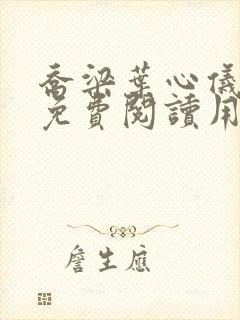 喬梁葉心儀
免費閱讀用
詹生應